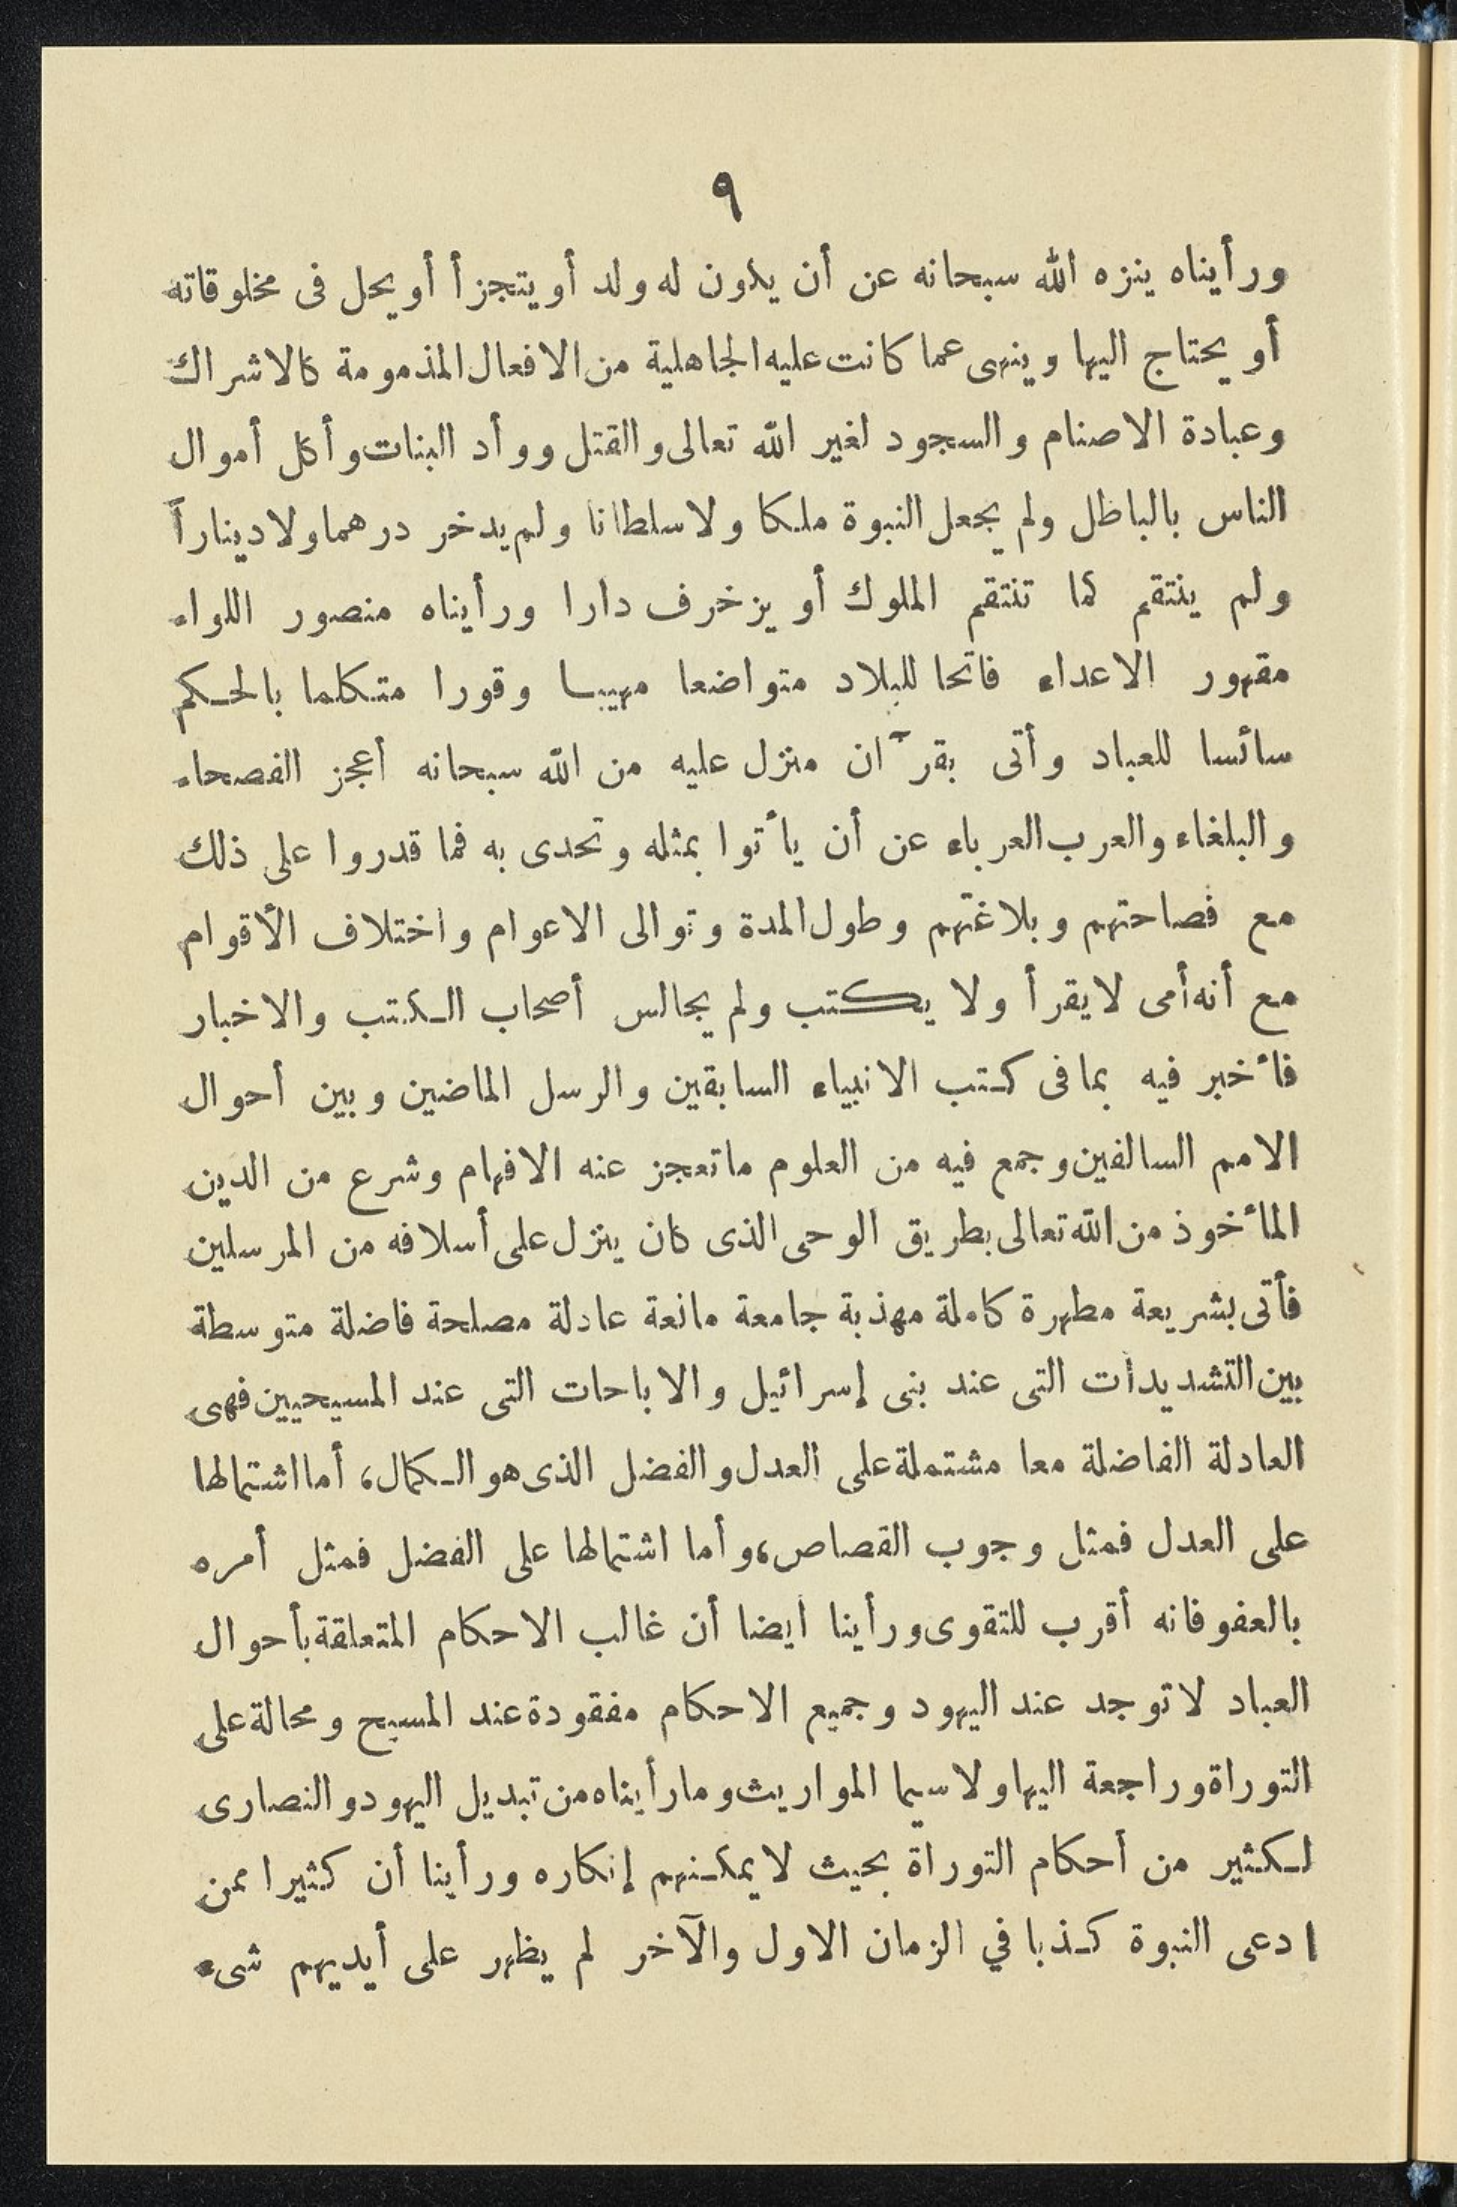 ٩
ورأيناه ينزه الله سبحانه عن أن يكون له ولد أو يتجزأ أو يحل فى مخلوقاته
أو يحتاج اليها وينهى عما كانت عليه الجاهلية من الافعال المذمومة كالاشراك
وعبادة الاصنام والسجود لغير الله تعالى والقتل ووأد البنات وأكل أموال
الناس بالباطل ولم يجعل النبوة ملكا ولا سلطانا ولم يدخر درهما ولا ديناراً
ولم ينتقم كما تنتقم الملوك أو يزخرف دارا ورأيناه منصور اللواء
مقهور الاعداء فاتحا للبلاد متواضعا مهيبا وقورا متكلما بالحكم
سائسا للعباد وأتى بقرآن منزل عليه من الله سبحانه أعجز الفصحاء
والبلغاء والعرب العرباء عن أن يأتوا بمثله وتحدى به فما قدروا على ذلك
مع فصاحتهم وبلاغتهم وطول المدة وتوالى الاعوام واختلاف الأقوام
مع أنه أمى لا يقرأ ولا يكتب ولم يجالس أصحاب الكتب والاخبار
فأخبر فيه بما فى كتب الانبياء السابقين والرسل الماضين وبين أحوال
الامم السالفين وجمع فيه من العلوم ما تعجز عنه الافهام وشرع من الدين
المأخوذ من الله تعالى بطريق الوحى الذى كان ينزل على أسلافه من المرسلين
فأتى بشريعة مطهرة كاملة مهذبة جامعة مانعة عادلة مصلحة فاضلة متوسطة
بين التشديدات التى عند بنى إسرائيل والاباحات التى عند المسيحيين فهى
العادلة الفاضلة معا مشتملة على العدل والفضل الذى هو الكمال، أما اشتمالها
على العدل فمثل وجوب القصاص، وأما اشتمالها على الفضل فمثل أمره
بالعفو فانه أقرب للتقوى ورأينا أيضا أن غالب الاحكام المتعلقة بأحوال
العباد لا توجد عند اليهود وجميع الاحكام مفقودة عند المسيح ومحالة على
التوراة وراجعة اليها ولا سيما المواريث وما رأيناه من تبديل اليهود والنصارى
لكثير من أحكام التوراة بحيث لا يمكنهم إنكاره ورأينا أن كثيرا ممن
ادعى النبوة كذبا في الزمان الاول والآخر لم يظهر على أيديهم شىء